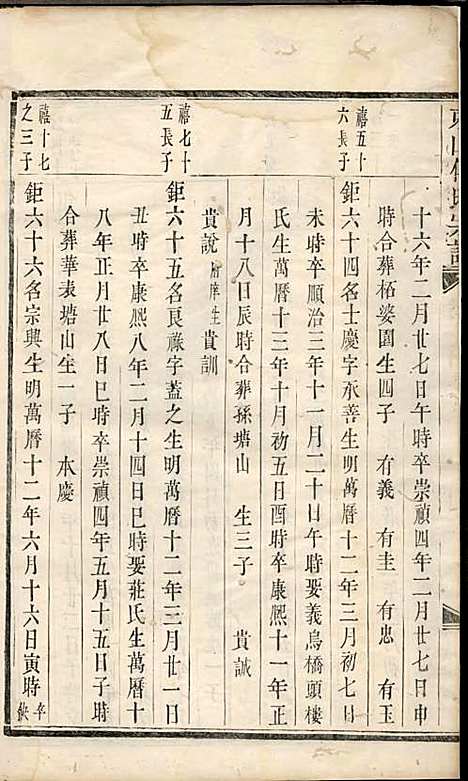 十六年二月廿七日午時卒崇禎四年二月廿七日申
時合葬柘婆園生四子　有義　有圭　有忠　有玉
禧五十六長子
鉅六十四名士慶字承善生明萬曆十二年三月初七日
未時卒順治三年十一月二十日午時娶義烏橋頭樓
氏生萬曆十三年十月初五日酉時卒康熙十一年正
月十八日辰時合葬孫塘山　生三子　貴誠
貴說　貴訓
禧七十五長子
鉅六十五名良祿字蓋之生明萬曆十二年三月廿一日
丑時卒康熙八年二月十四日巳時娶莊氏生萬曆十
八年正月廿八日巳時卒崇禎四年五月十五日子時
合葬華表塘山生一子　本慶
禧十七之三子
鉅六十六名宗興生明萬曆十二年六月十六日寅時卒缺